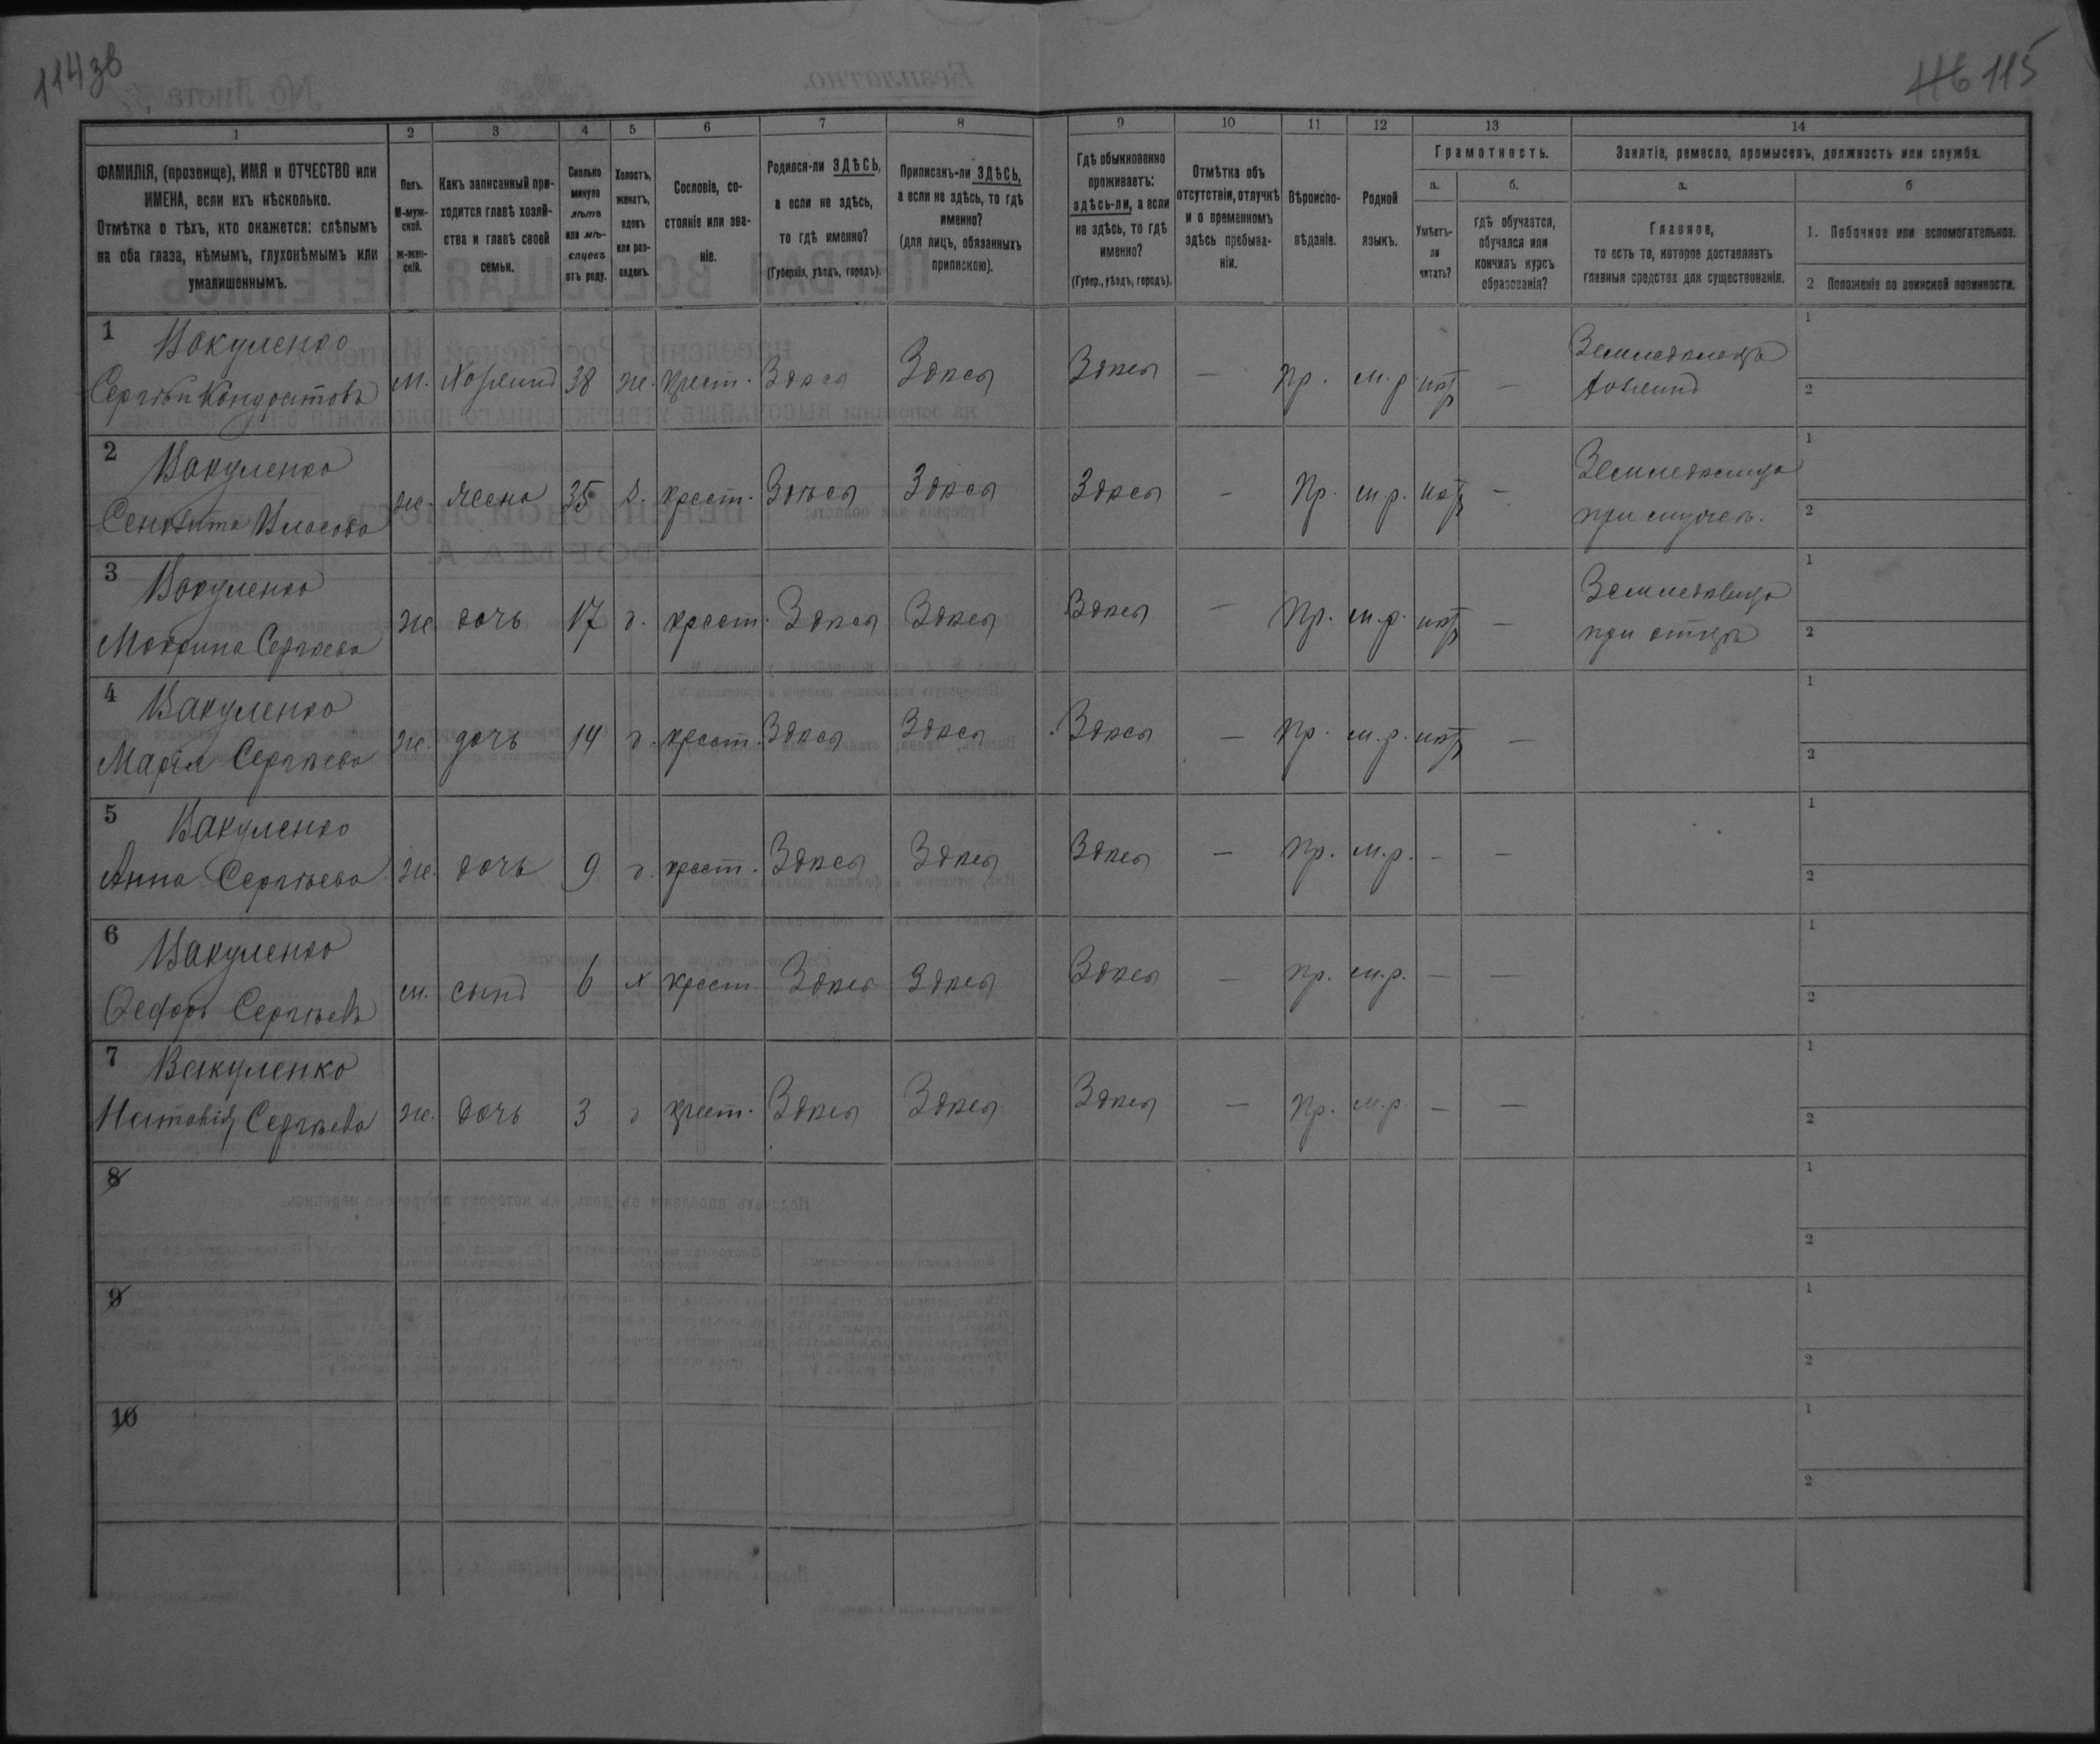 114зв
116 115
1
2
3
4
5
6
7
8
9
10
11
12
13
14
ФАМИЛІЯ, (прозвище), ИМЯ и ОТЧЕСТВО или
ИМЕНА, если ихъ нѣсколько.
Отмѣтка о тѣхъ, кто окажется: слѣпымъ
на оба глаза, нѣмымъ, глухонѣмымъ или
умалишеннымъ.
Полъ.
М-муж-
ской.
ж-жен-
скій.
Какъ записанный при-
ходится главѣ хозяй-
ства и главѣ своей
семьи.
Сколько
минуло
лѣтъ
или мѣ-
сяцевъ
отъ роду.
Холостъ,
женатъ,
вдовъ
или раз-
веденъ.
Сословіе, со-
стояніе или зва-
ніе.
Родился-ли ЗДѢСЬ,
а если не здѣсь,
то гдѣ именно?
(Губернія, уѣздъ, городъ).
Приписанъ-ли ЗДѢСЬ,
а если не здѣсь, то гдѣ
именно?
(для лицъ, обязанныхъ
припискою).
Гдѣ обыкновенно
проживаетъ:
здѣсь-ли, а если
не здѣсь, то гдѣ
именно?
(Губер., уѣздъ, городъ).
Отмѣтка объ
отсутствіи, отлучкѣ
и о временномъ
здѣсь пребыва-
ніи.
Вѣроиспо-
вѣданіе.
Родной
языкъ.
Грамотность.
а.
Умѣетъ-
ли
читать?
б.
гдѣ обучается,
обучался или
кончилъ курсъ
образованія?
Занятіе, ремесло, промыселъ, должность или служба.
а.
Главное,
то есть то, которое доставляетъ
главныя средства для существованія.
б
1. Побочное или вспомогательное.
2 Положеніе по воинской повинности.
1 Вакуленко
Сергѣй Кондратовъ м. хозяинъ 38 ж. крест. Здѣсь Здѣсь Здѣсь — пр. м.р. нѣтъ — Земледѣлецъ
хозяинъ
1
2
2 Вакуленко
Власова ж. жена 35 з. крест. Здѣсь Здѣсь Здѣсь — пр. м.р. нѣтъ — Земледѣлица
при
1
2
3 Вакуленко
Мокрина Сергѣева ж. дочь 17 д. крест. Здѣсь Здѣсь Здѣсь — пр. м.р. нѣтъ — Земледѣлица
при отцѣ
1
2
4 Вакуленко
Марія Сергѣева ж. дочь 14 д. крест. Здѣсь Здѣсь Здѣсь — пр. м.р. нѣтъ —
1
2
5 Вакуленко
Анна Сергѣева ж. дочь 9 д. крест. Здѣсь Здѣсь Здѣсь — пр. м.р. — —
1
2
6 Вакуленко
Ѳедоръ Сергѣевъ м. сынъ 6 х крест. Здѣсь Здѣсь Здѣсь — пр. м.р. — —
1
2
7 Вакуленко
Сергѣева ж. дочь 3 д крест. Здѣсь Здѣсь Здѣсь — пр. м.р. — —
1
2
8
1
2
9
1
2
10
1
2